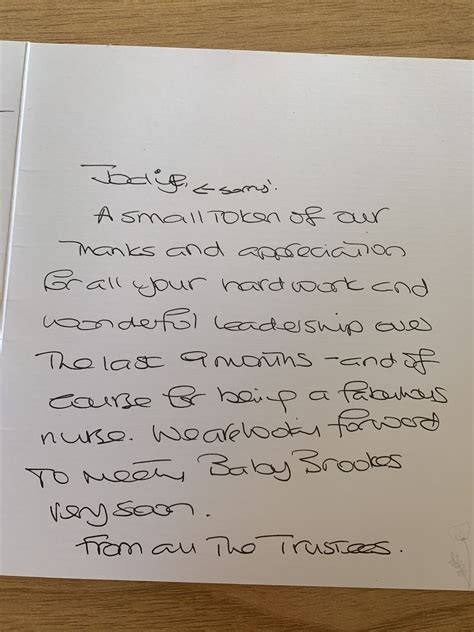 Jodie,
A small token of our
thanks and appreciation
for all your hard work and
wonderful leadership over
the last 9 months - and of
course for being a fabulous
nurse. We are looking forward
to meeting Baby Brookes
very soon.
From all the Trustees.